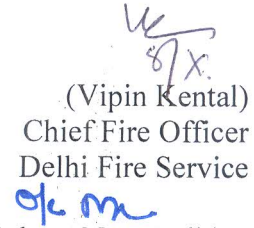 8/X.
(Vipin Kental)
Chief Fire Officer
Delhi Fire Service